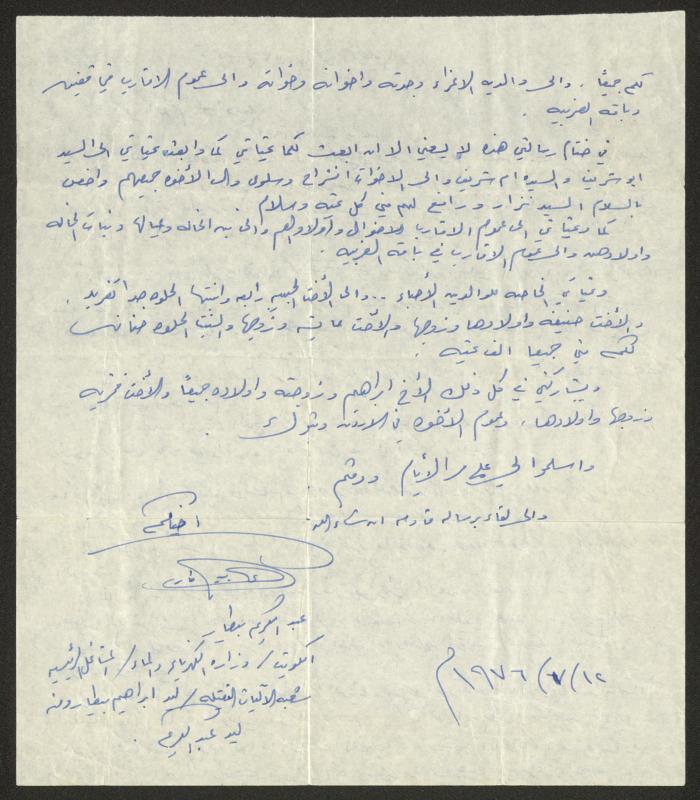 لكم جميعاً. والى والديه الاعزاء وجدته واخوانه وخواته والى عموم الاقارب في قفين
وباقه الغربيه.
في ختام رسالتي هذه لا يسعني الا ان ابعث لكما تحياتي كما وابعث تحياتي الى السيد
ابو شريف والسيده ام شريف والى الاخوات انشراح وسلوى والى الأخوه جميعهم واخص
بالسلام السيد نزار ورامع لهم مني كل تحيه وسلام.
كما وتحياتي الى عموم الاقارب الاخوال واولادهم والى بن الخاله وعيالها وبنات الخاله
واولادهن والى عموم الاقارب في باقه الغربيه.
وتحياتي الخاصه للوالدين الأحباء.. والى الأخت الحبيبه رابعه وابنتها الحلوه جداً تغريد.
والأخت حنيفه واولادها وزوجها والأخت عايشه وزوجها والبنت الحلوه حنان
لكم مني جميعا الف تحيه.
ويشاركني في كل ذلك الأخ ابراهيم وزوجته واولاده جميعاً والأخت فخريه
وزوجها واولادها، وعموم الأخوه في الاردن
واسلموا لي على مر الأيام ودمتم.
والى لقاء برسالة قادمه ان شاء الله
اخيكم
عبد الكريم بيطار
الكويت / وزارة الكهرباء والماء / المشاغل الرئيسيه
شعبة الآليات الثقيله / ليد ابراهيم بيطار ومنه
ليد عبد الكريم.
١٢/٧/١٩٧٦م